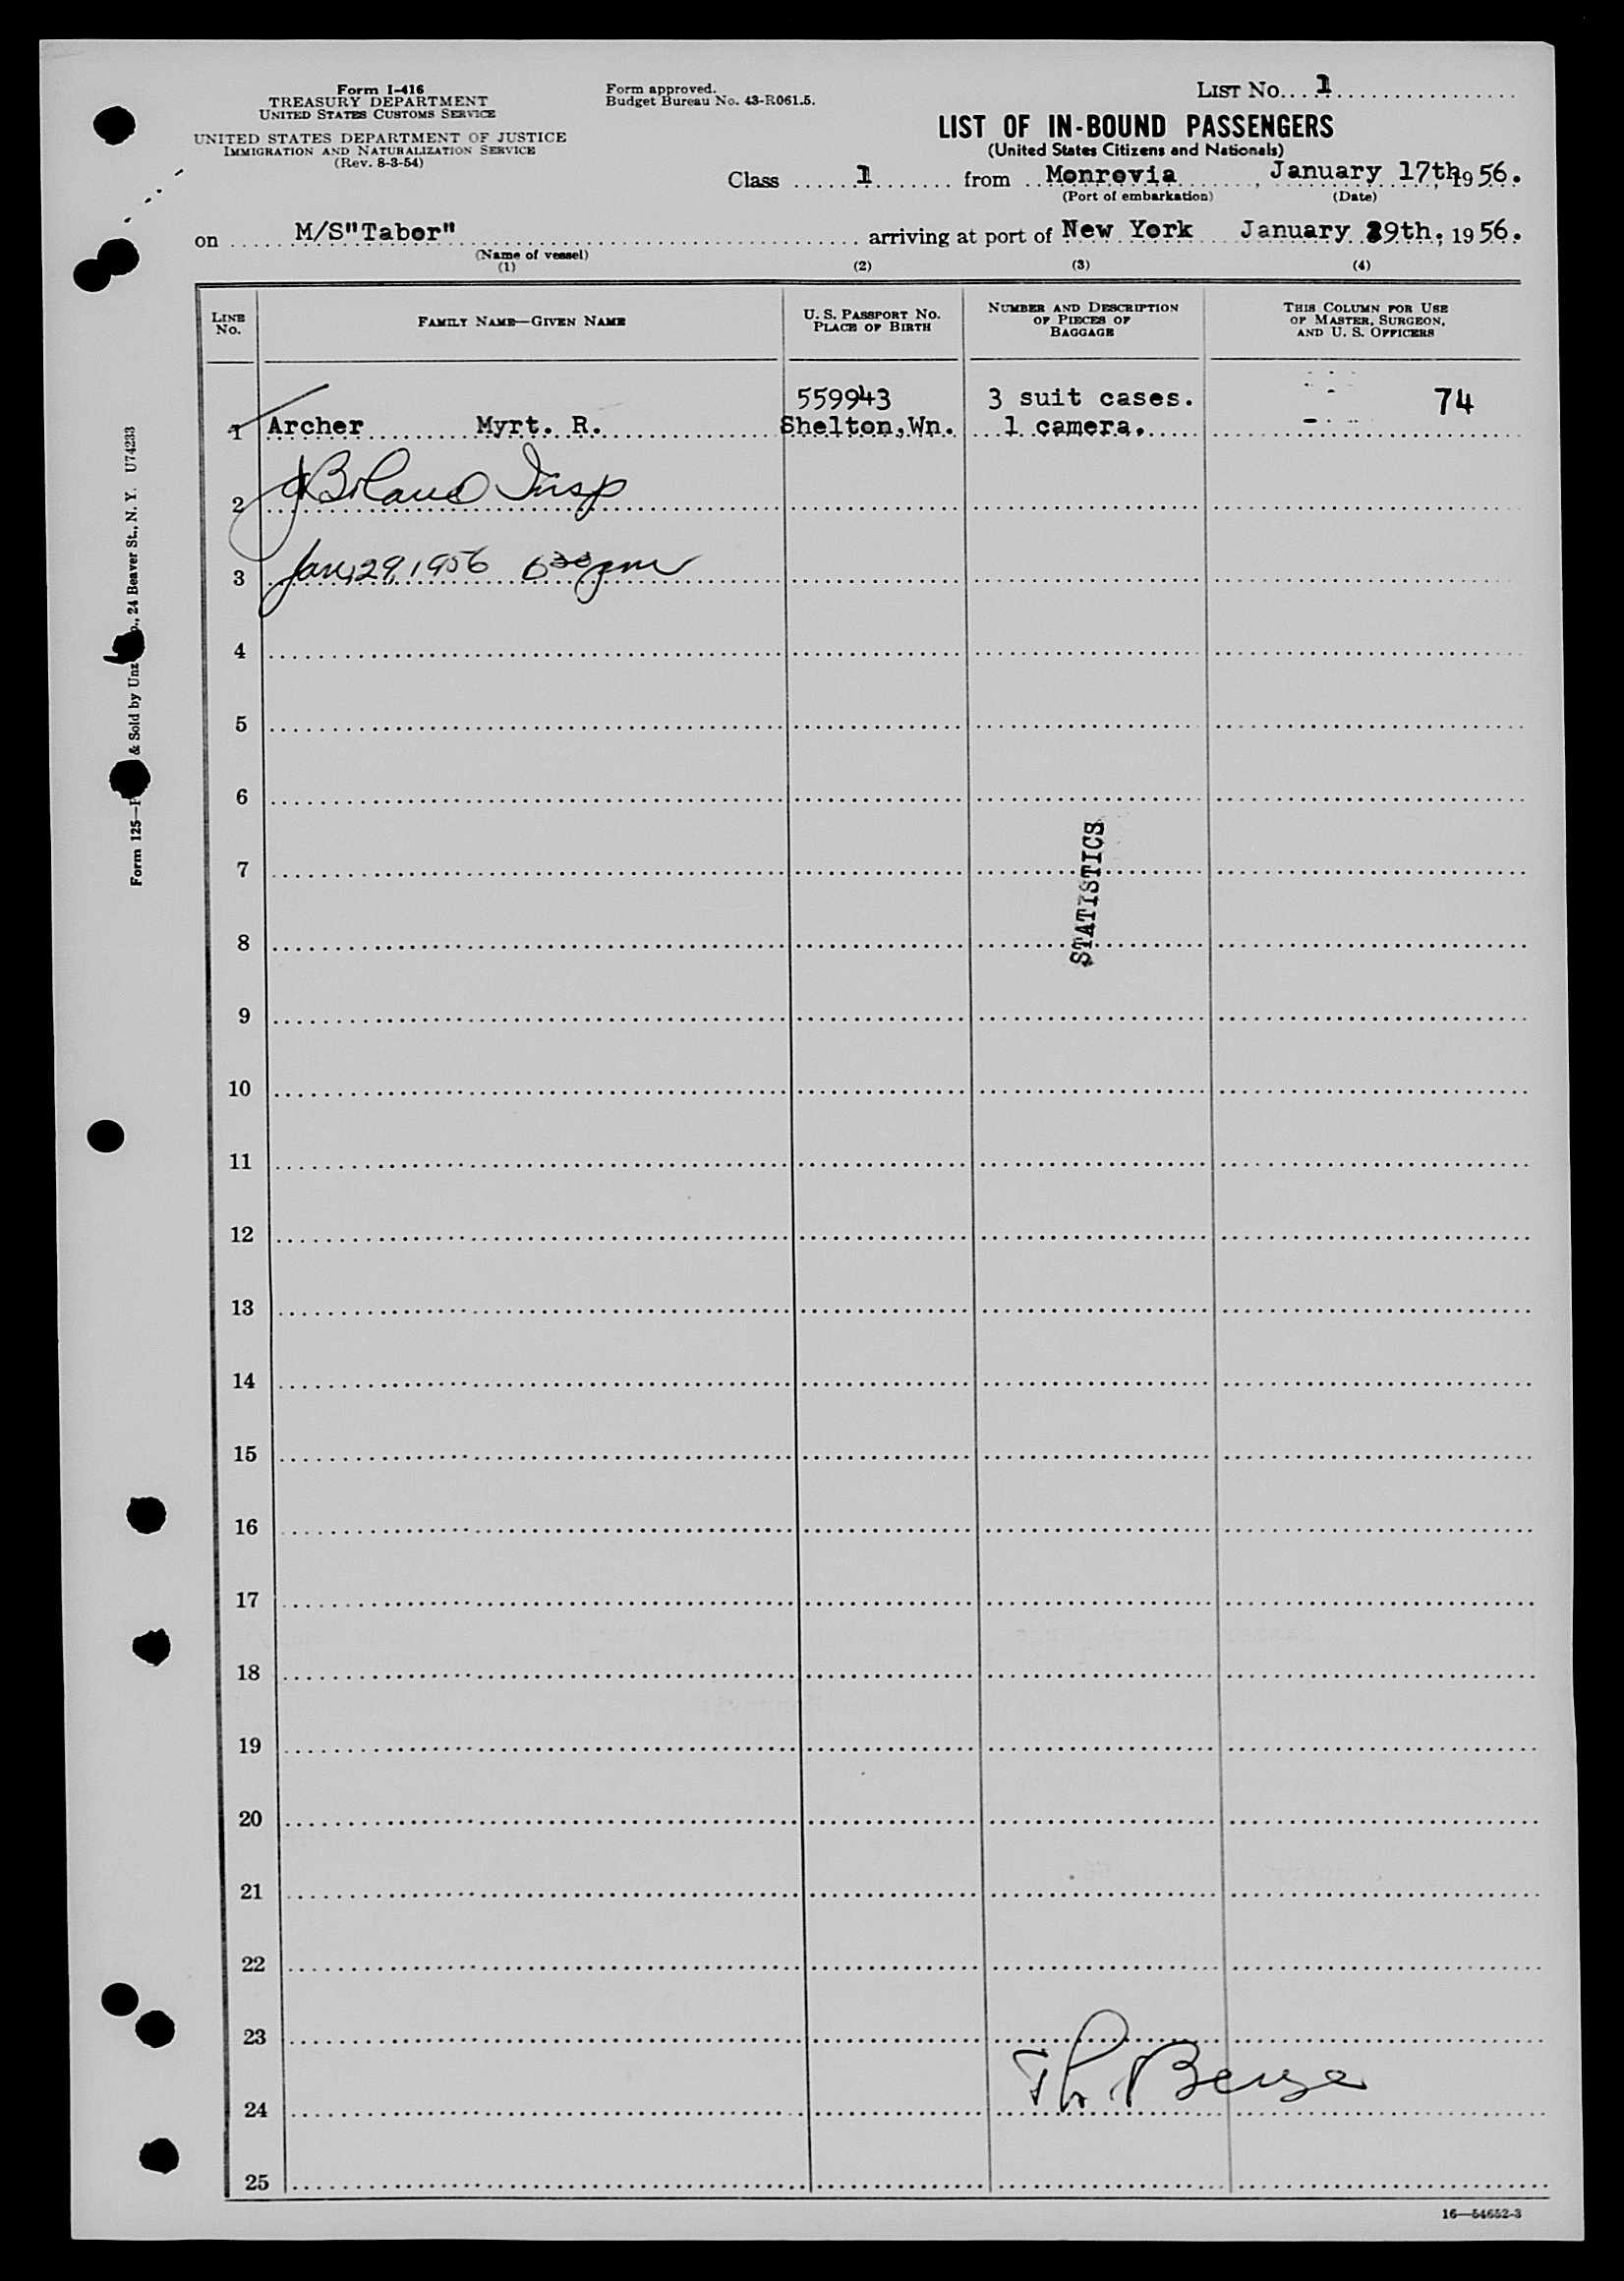 Form I-416
TREASURY DEPARTMENT
UNITED STATES CUSTOMS SERVICE
UNITED STATES DEPARTMENT OF JUSTICE
IMMIGRATION AND NATURALIZATION SERVICE
(Rev. 8-3-54)
Form approved.
Budget Bureau No. 43-R061.5.
LIST No. 1
LIST OF IN-BOUND PASSENGERS
(United States Citizens and Nationals)
Class 1 from Monrovia, January 17th, 1956.
(Port of embarkation) (Date)
on M/S"Tabor" arriving at port of New York January 29th, 1956.
(Name of vessel)
(1) (2) (3) (4)
LINE No. FAMILY NAME—GIVEN NAME U. S. PASSPORT No. PLACE OF BIRTH NUMBER AND DESCRIPTION OF PIECES OF BAGGAGE THIS COLUMN FOR USE OF MASTER, SURGEON, AND U. S. OFFICERS
559943 3 suit cases. 74
1 Archer Myrt. R. Shelton,Wn. 1 camera.
2 Boland Insp
3 Jan, 29, 1956 6 30 pm
4
5
6
7
8
STATISTICS
9
10
11
12
13
14
15
16
17
18
19
20
21
22
23
Th. Berge
24
25
16—54652-3
Form 125— & Sold by Unz , 24 Beaver St., N. Y. U74233